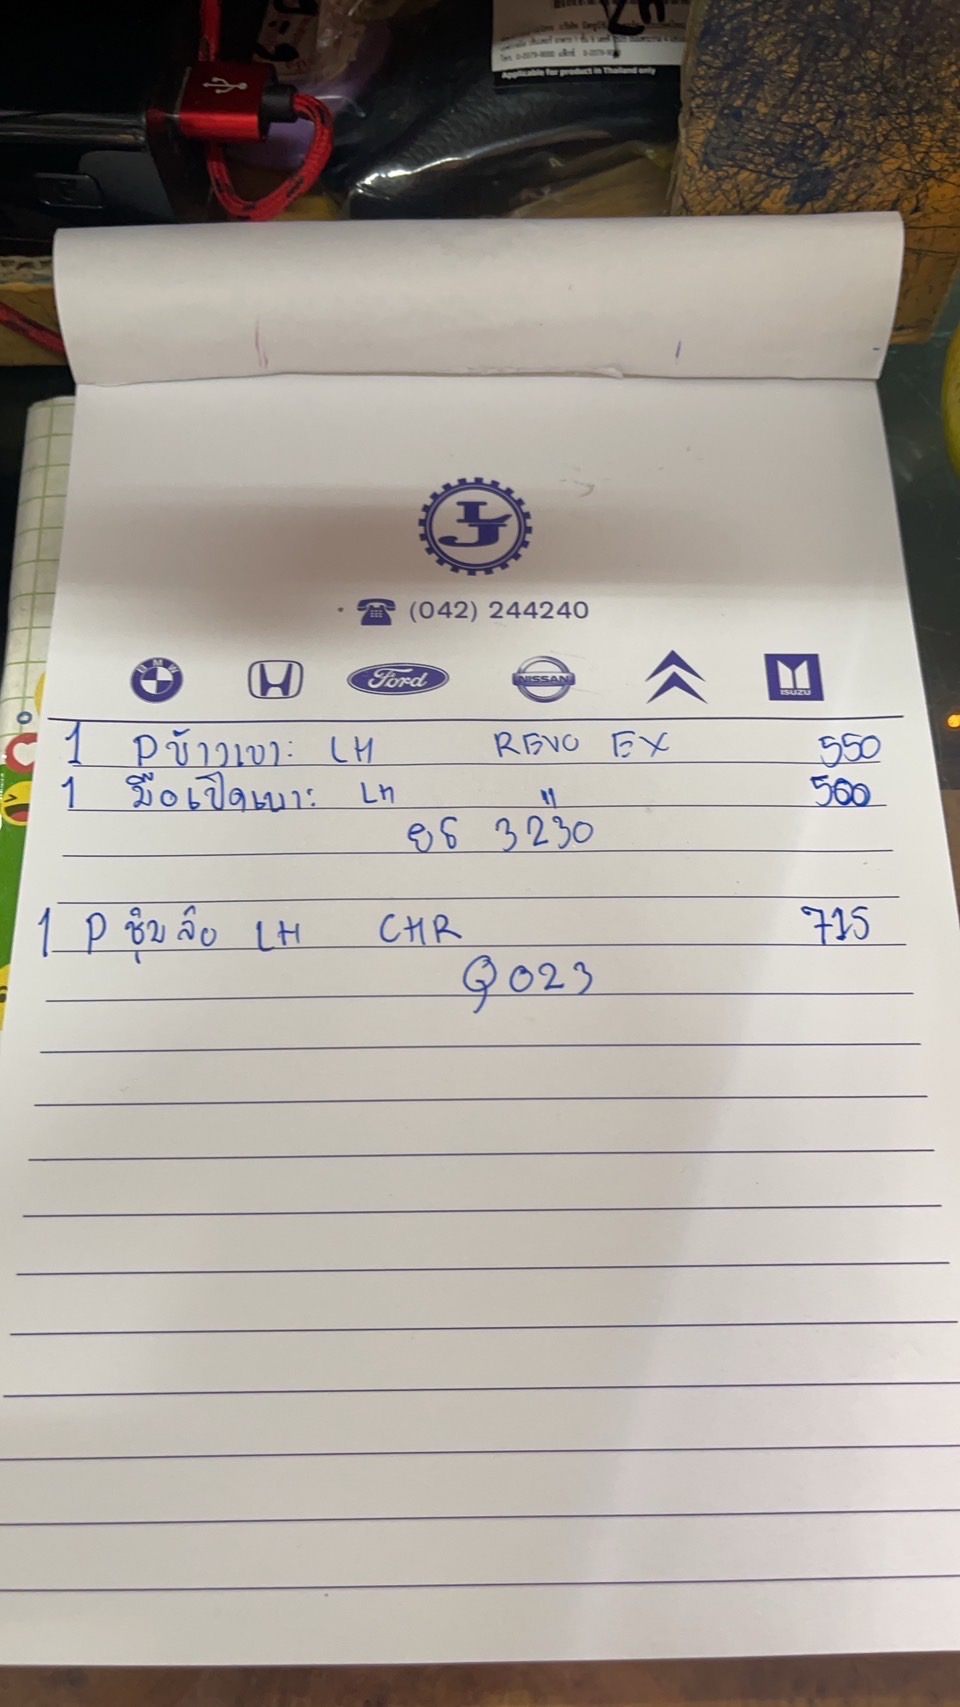 Applicable for product in Thailand only
(042) 244240
BMW Ford NISSAN ISUZU
1 Pข้างเบาะ LH REVO EX 550
1 มือเปิดเบาะ LH " 500
ยธ 3230
1 P ซุ้มล้อ LH CHR 715
023